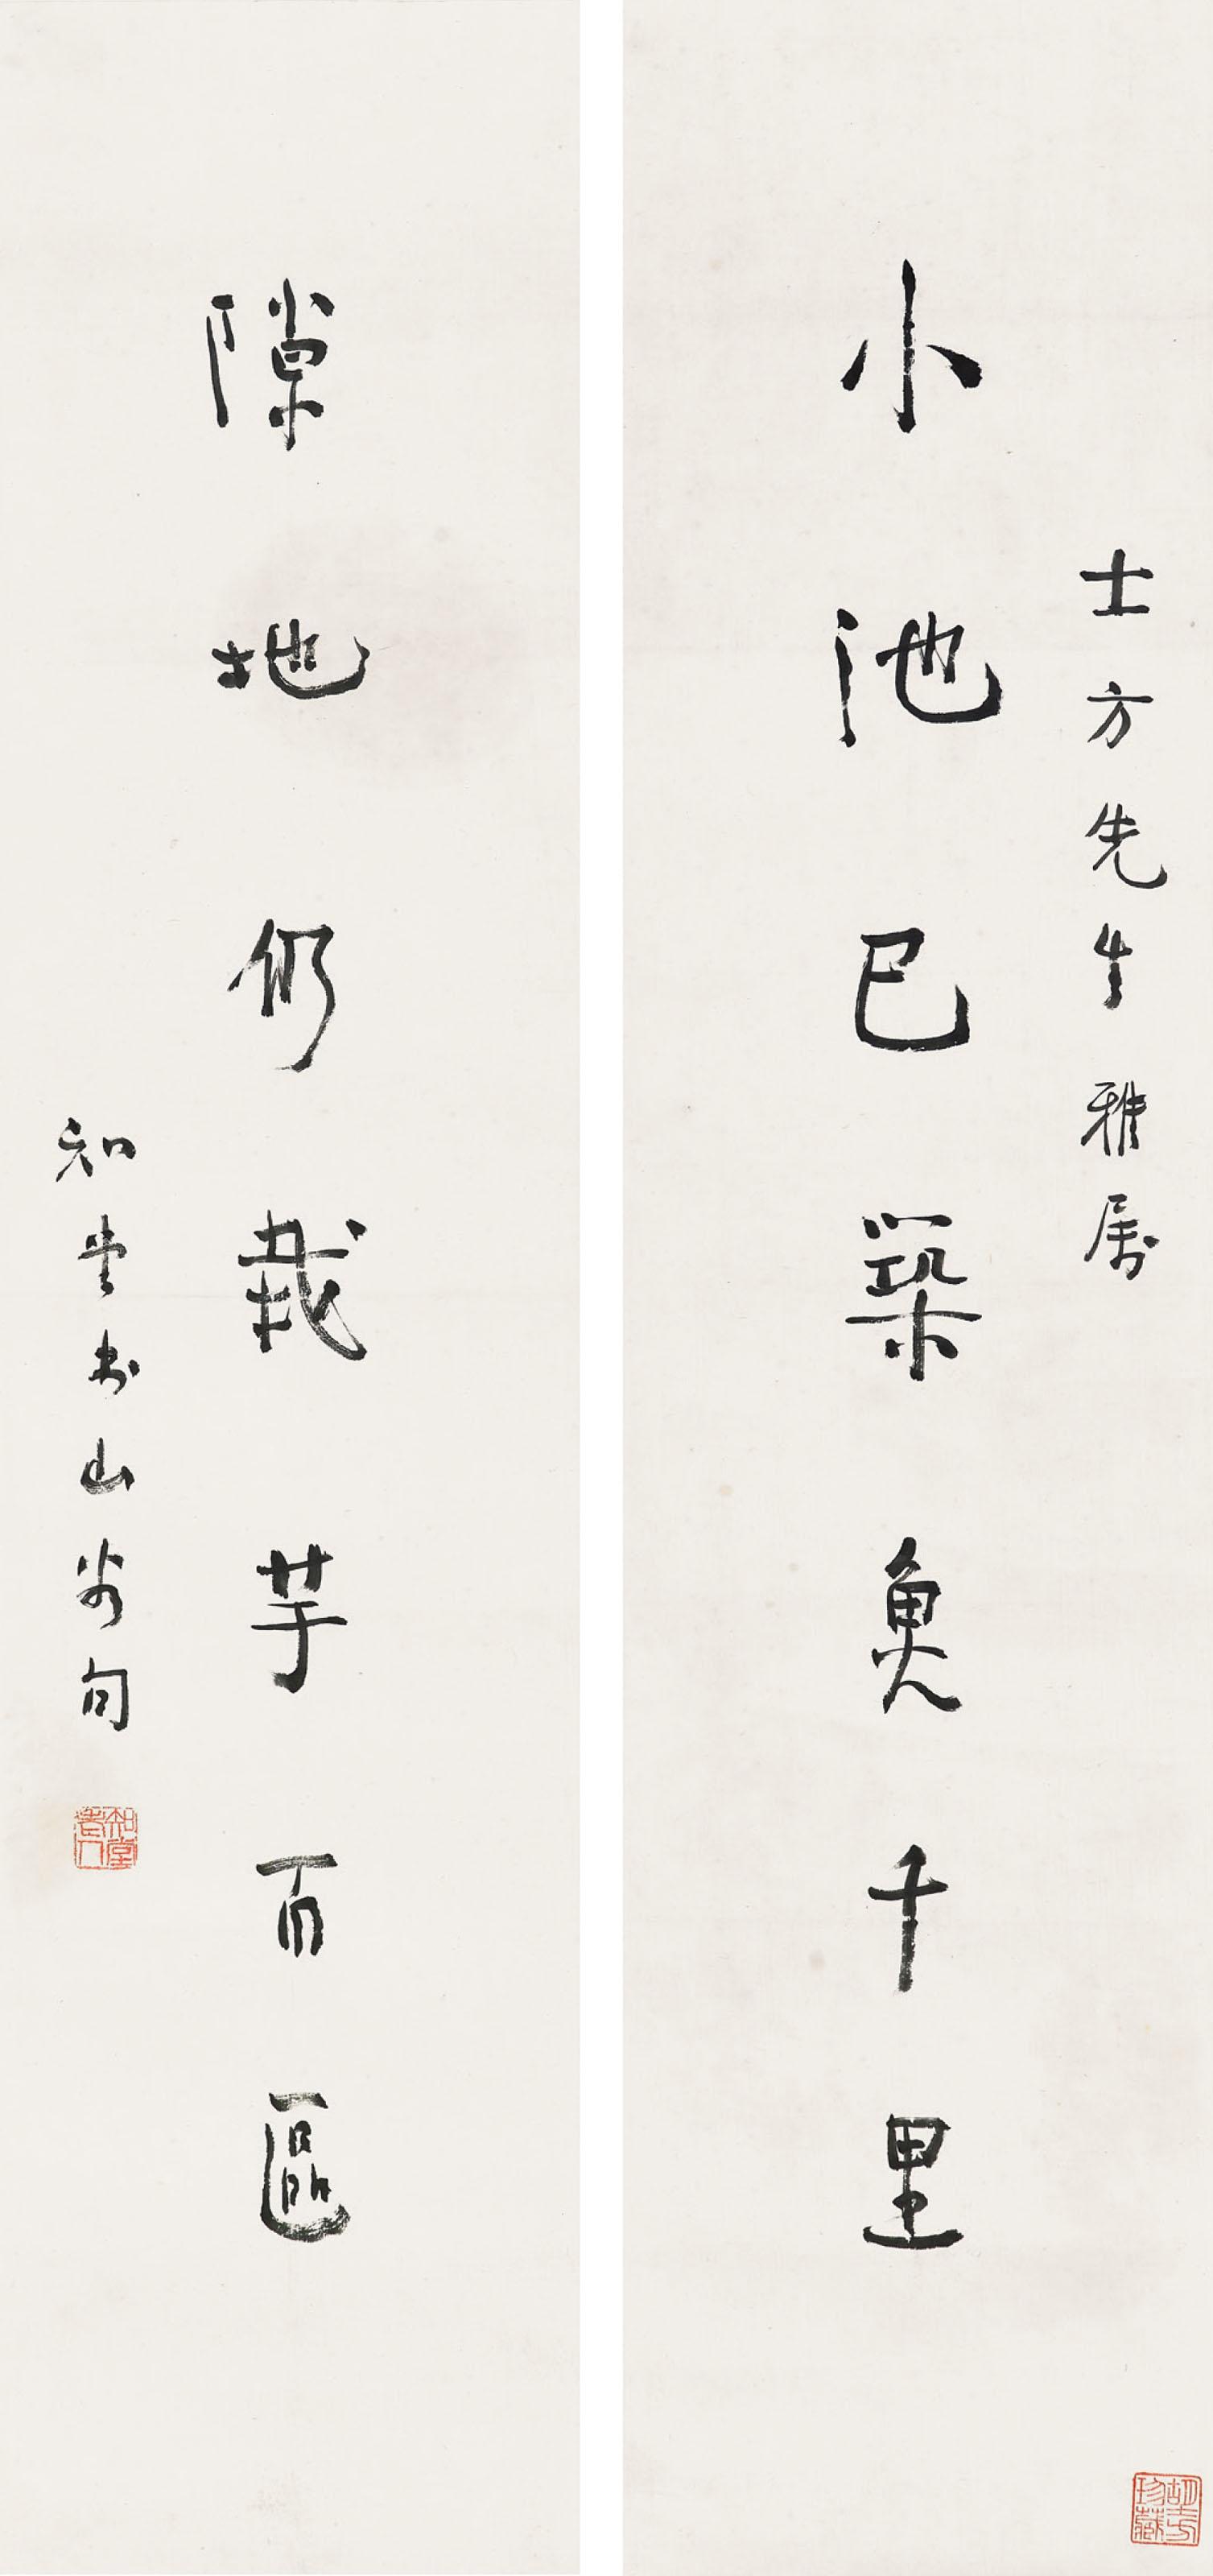 士方先生雅属
小池已築魚千里
隙地仍栽芋百區
知堂书山谷句
知堂老人
胡士方珍藏